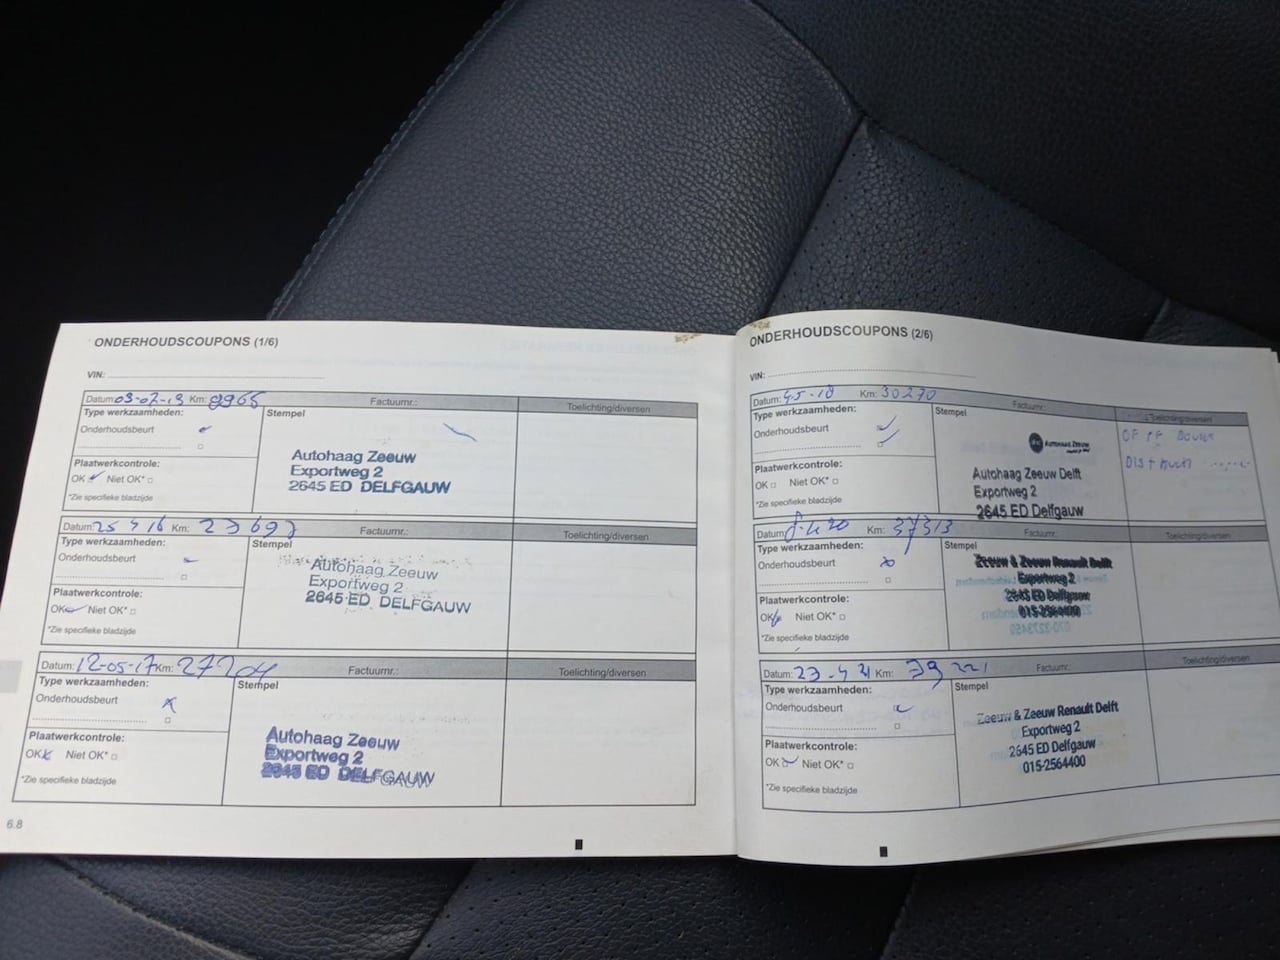 ONDERHOUDSCOUPONS (1/6)
VIN:
Datum: 03-02-15 Km: 8965 Factuurnr.: Toelichting/diversen
Type werkzaamheden: Stempel
Onderhoudsbeurt
Plaatwerkcontrole:
OK Niet OK*
*Zie specifieke bladzijde
Autohaag Zeeuw
Exportweg 2
2645 ED DELFGAUW
Datum: 25 4 16 Km: 23697 Factuurnr.: Toelichting/diversen
Type werkzaamheden: Stempel
Onderhoudsbeurt
Plaatwerkcontrole:
OK Niet OK*
*Zie specifieke bladzijde
Autohaag Zeeuw
Exportweg 2
2645 ED DELFGAUW
Datum: 12-05-17 Km: 27204 Factuurnr.: Toelichting/diversen
Type werkzaamheden: Stempel
Onderhoudsbeurt
Plaatwerkcontrole:
OK Niet OK*
*Zie specifieke bladzijde
Autohaag Zeeuw
Exportweg 2
2645 ED DELFGAUW
6.8
ONDERHOUDSCOUPONS (2/6)
VIN:
Datum: Km: 30270 Factuurnr.: Toelichting/diversen
Type werkzaamheden: Stempel
Onderhoudsbeurt
Plaatwerkcontrole:
OK Niet OK*
*Zie specifieke bladzijde
AUTOHAAG ZEEUW
Autohaag Zeeuw Delft
Exportweg 2
2645 ED Delfgauw
Datum: Km: 37313 Factuurnr.: Toelichting/diversen
Type werkzaamheden: Stempel
Onderhoudsbeurt
Plaatwerkcontrole:
OK Niet OK*
*Zie specifieke bladzijde
Zeeuw & Zeeuw Renault Delft
Exportweg 2
2645 ED Delfgauw
015-2564400
Datum: 23-4 21 Km: 39 221 Factuurnr.: Toelichting/diversen
Type werkzaamheden: Stempel
Onderhoudsbeurt
Plaatwerkcontrole:
OK Niet OK*
*Zie specifieke bladzijde
Zeeuw & Zeeuw Renault Delft
Exportweg 2
2645 ED Delfgauw
015-2564400